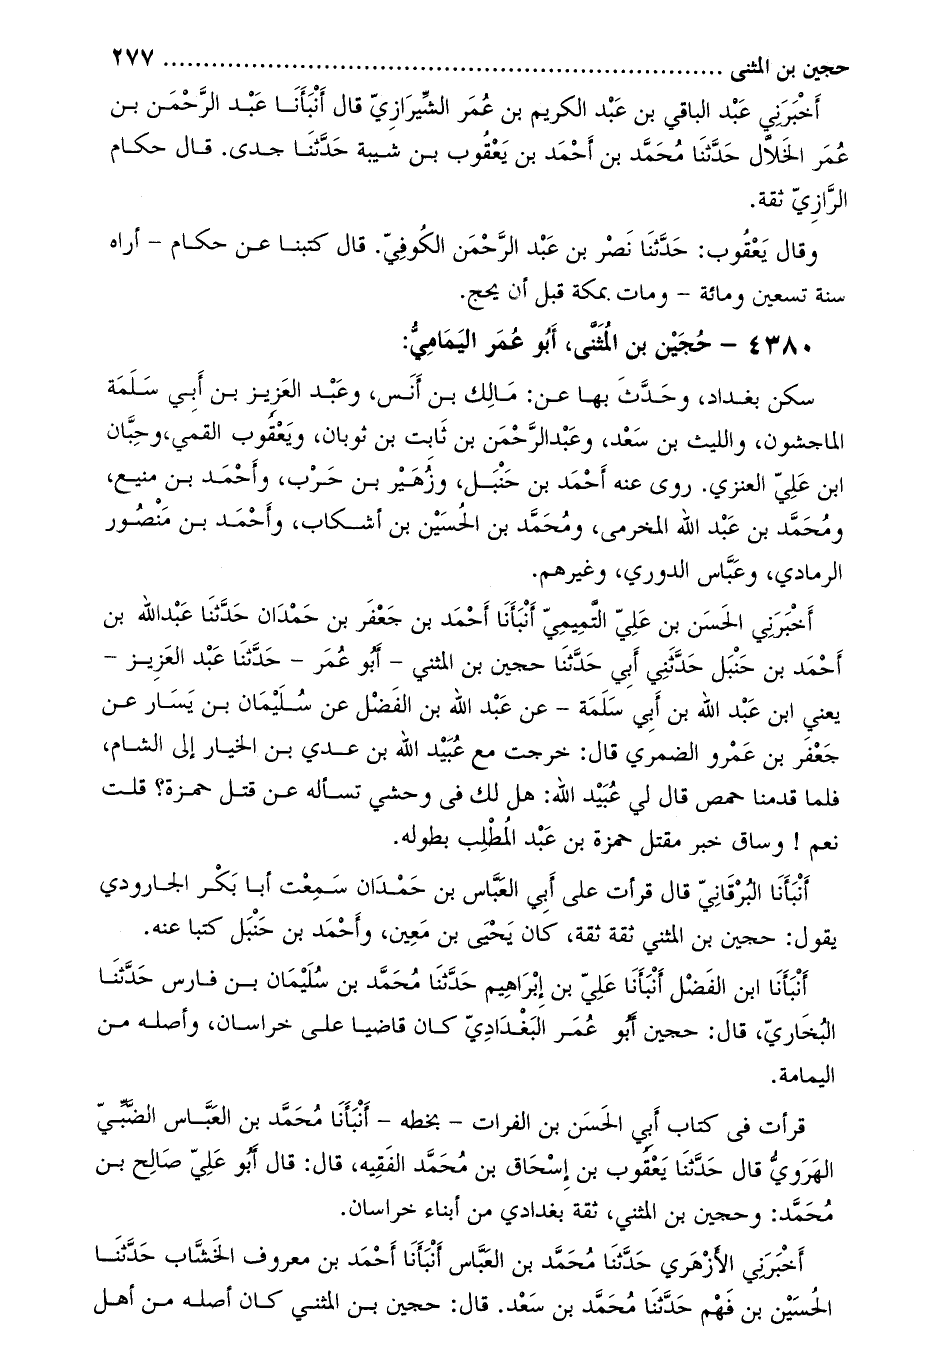 حجين بن المثنى ........................................................................ ٢٧٧
أَخْبَرَنِي عَبْد الباقي بن عَبْد الكريم بن عُمَر الشِّيرَازِيّ قال أَنْبَأَنَا عَبْد الرَّحْمَن بن
عُمَر الخَلاَّل حَدَّثَنَا مُحَمَّد بن أَحْمَد بن يَعْقُوب بن شيبة حَدَّثَنَا جدى. قال حكام
الرَّازِيّ ثقة.
وقال يَعْقُوب: حَدَّثَنَا نَصْر بن عَبْد الرَّحْمَن الكُوفِيّ. قال كتبنا عن حكام - أراه
سنة تسعين ومائة - ومات بمكة قبل أن يحج.
٤٣٨٠ - حُجَيْن بن المُثَنَّى، أَبُو عُمَر اليَمَامِيُّ:
سكن بغداد، وحَدَّثَ بها عن: مَالِك بن أَنَس، وعَبْد العَزِيز بن أَبي سَلَمَة
الماجشون، والليث بن سَعْد، وعَبْدالرَّحْمَن بن ثَابِت بن ثوبان، ويَعْقُوب القمي،وحِبَّان
ابن عَلِيّ العنزي. روى عنه أَحْمَد بن حَنْبَل، وزُهَيْر بن حَرْب، وأَحْمَد بن منيع،
ومُحَمَّد بن عَبْد الله المخرمى، ومُحَمَّد بن الحُسَيْن بن أشكاب، وأَحْمَد بن مَنْصُور
الرمادي، وعَبَّاس الدوري، وغيرهم.
أَخْبَرَنِي الحَسَن بن عَلِيّ التَّمِيمِيّ أَنْبَأَنَا أَحْمَد بن جَعْفَر بن حَمْدَان حَدَّثَنَا عَبْدالله بن
أَحْمَد بن حَنْبَل حَدَّثَنِي أَبي حَدَّثَنَا حجين بن المثني - أَبُو عُمَر - حَدَّثَنَا عَبْد العَزِيز -
يعني ابن عَبْد الله بن أَبي سَلَمَة - عن عَبْد الله بن الفَضْل عن سُلَيْمَان بن يَسَار عن
جَعْفَر بن عَمْرو الضمري قال: خرجت مع عُبَيْد الله بن عدي بن الخيار إلى الشام،
فلما قدمنا حمص قال لي عُبَيْد الله: هل لك فى وحشي تسأله عن قتل حمزة؟ قلت
نعم ! وساق خبر مقتل حمزة بن عَبْد المُطْلِب بطوله.
أَنْبَأَنَا البُرْقَانِيّ قال قرأت على أَبي العَبَّاس بن حَمْدَان سَمِعْت أبا بَكْر الجارودي
يقول: حجين بن المثني ثقة ثقة، كان يَحْيَى بن مَعِين، وأَحْمَد بن حَنْبَل كتبا عنه.
أَنْبَأَنَا ابن الفَضْل أَنْبَأَنَا عَلِيّ بن إِبْرَاهِيم حَدَّثَنَا مُحَمَّد بن سُلَيْمَان بن فارس حَدَّثَنَا
البُخَارِيّ، قال: حجين أَبُو عُمَر البَغْدَادِيّ كان قاضيا على خراسان، وأصله من
اليمامة.
قرأت فى كتاب أَبي الحَسَن بن الفرات - بخطه - أَنْبَأَنَا مُحَمَّد بن العَبَّاس الضَّبِّيّ
الهَرَوِيُّ قال حَدَّثَنَا يَعْقُوب بن إِسْحَاق بن مُحَمَّد الفَقِيه، قال: قال أَبُو عَلِيّ صَالِح بن
مُحَمَّد: وحجين بن المثني، ثقة بغدادي من أبناء خراسان.
أَخْبَرَنِي الأَزْهَري حَدَّثَنَا مُحَمَّد بن العَبَّاس أَنْبَأَنَا أَحْمَد بن معروف الخَشَّاب حَدَّثَنَا
الحُسَيْن بن فَهْم حَدَّثَنَا مُحَمَّد بن سَعْد. قال: حجين بن المثني كان أصله من أهل